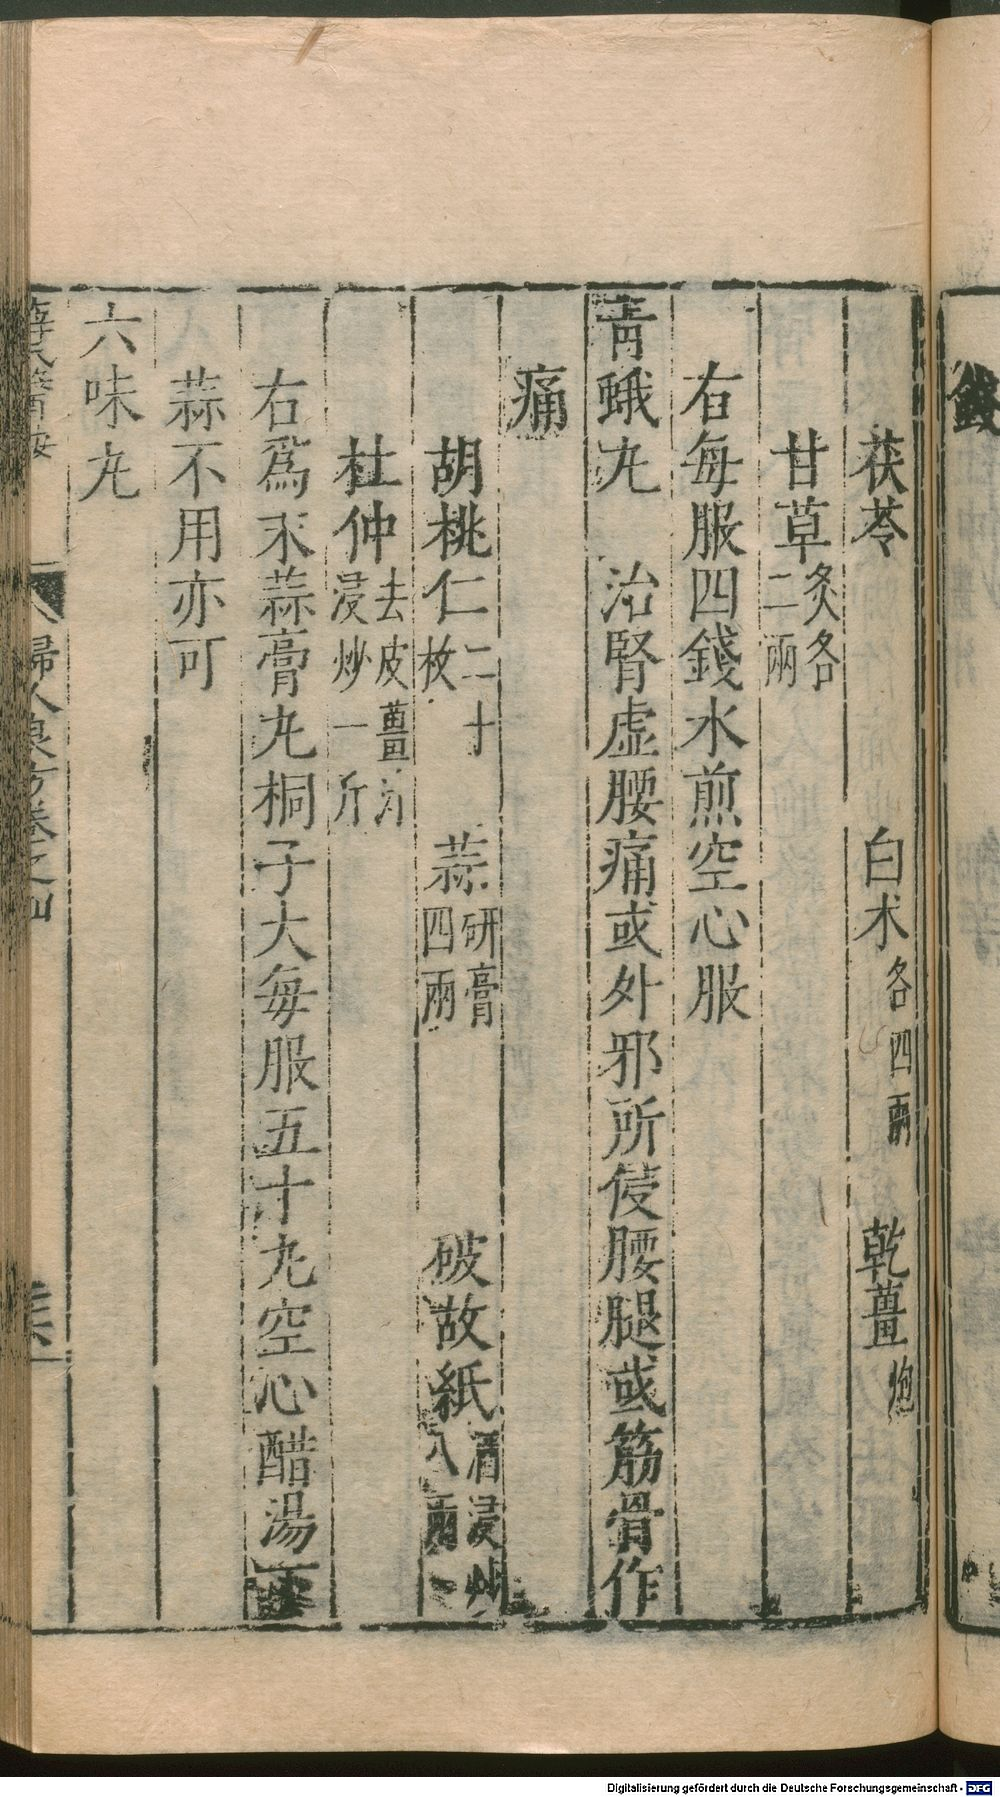 茯苓　白朮各四兩　乾薑炮
甘草炙各二兩
右每服四錢水煎空心服
青蛾丸　治腎虛腰痛或外邪所侵腰腿或筋骨作
痛
胡桃仁二十枚　蒜研膏四兩　破故紙酒浸炒八兩
杜仲去皮薑汁浸炒一斤
右爲末蒜膏丸桐子大每服五十丸空心醋湯下
蒜不用亦可
六味丸
婦人良方卷之四
Digitalisierung gefördert durch die Deutsche Forschungsgemeinschaft - DFG